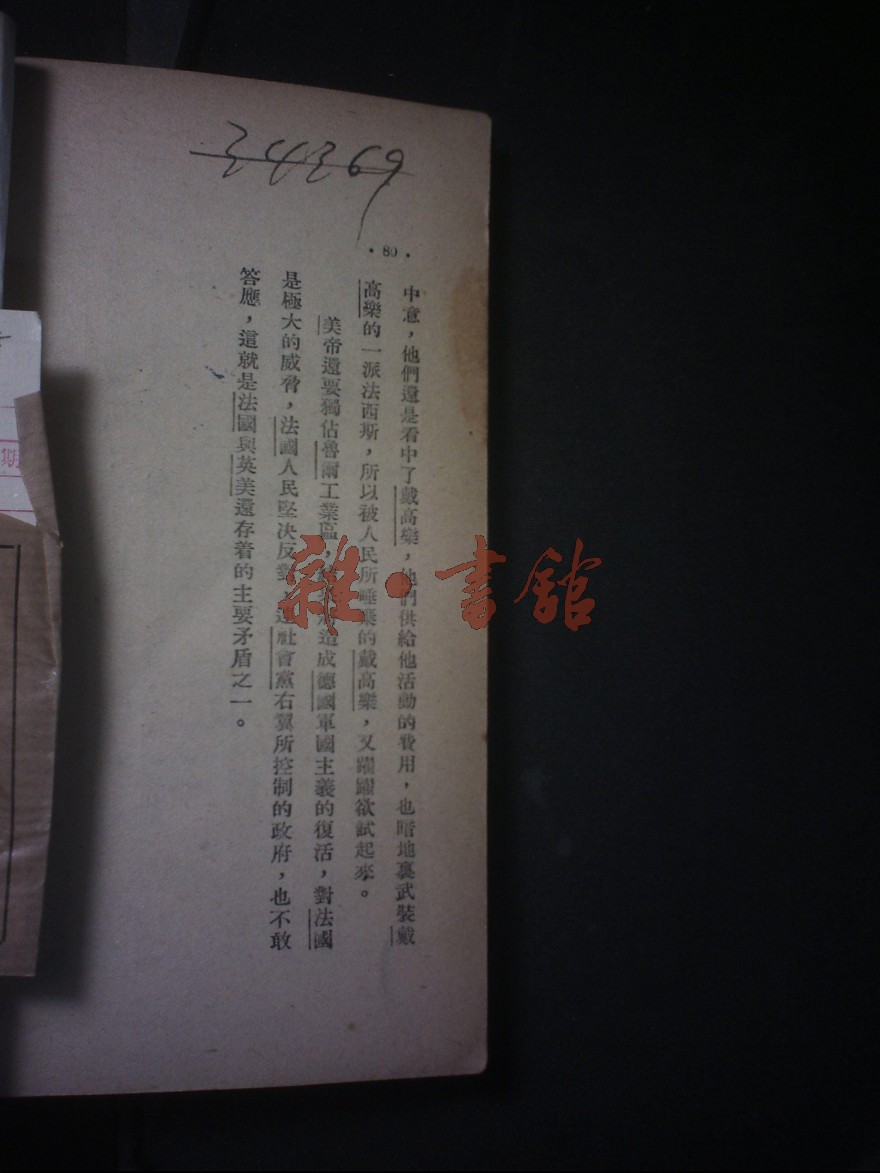 34369
· 80 ·
中意，他們還是看中了戴高樂，他們供給他活動的費用，也暗地裏武裝戴
高樂的一派法西斯，所以被人民所唾棄的戴高樂，又躍躍欲試起來。
美帝還要獨佔魯爾工業區，造成德國軍國主義的復活，對法國
是極大的威脅，法國人民堅决反對，連社會黨右翼所控制的政府，也不敢
答應，這就是法國與英美還存着的主要矛盾之一。
雜·書館
期